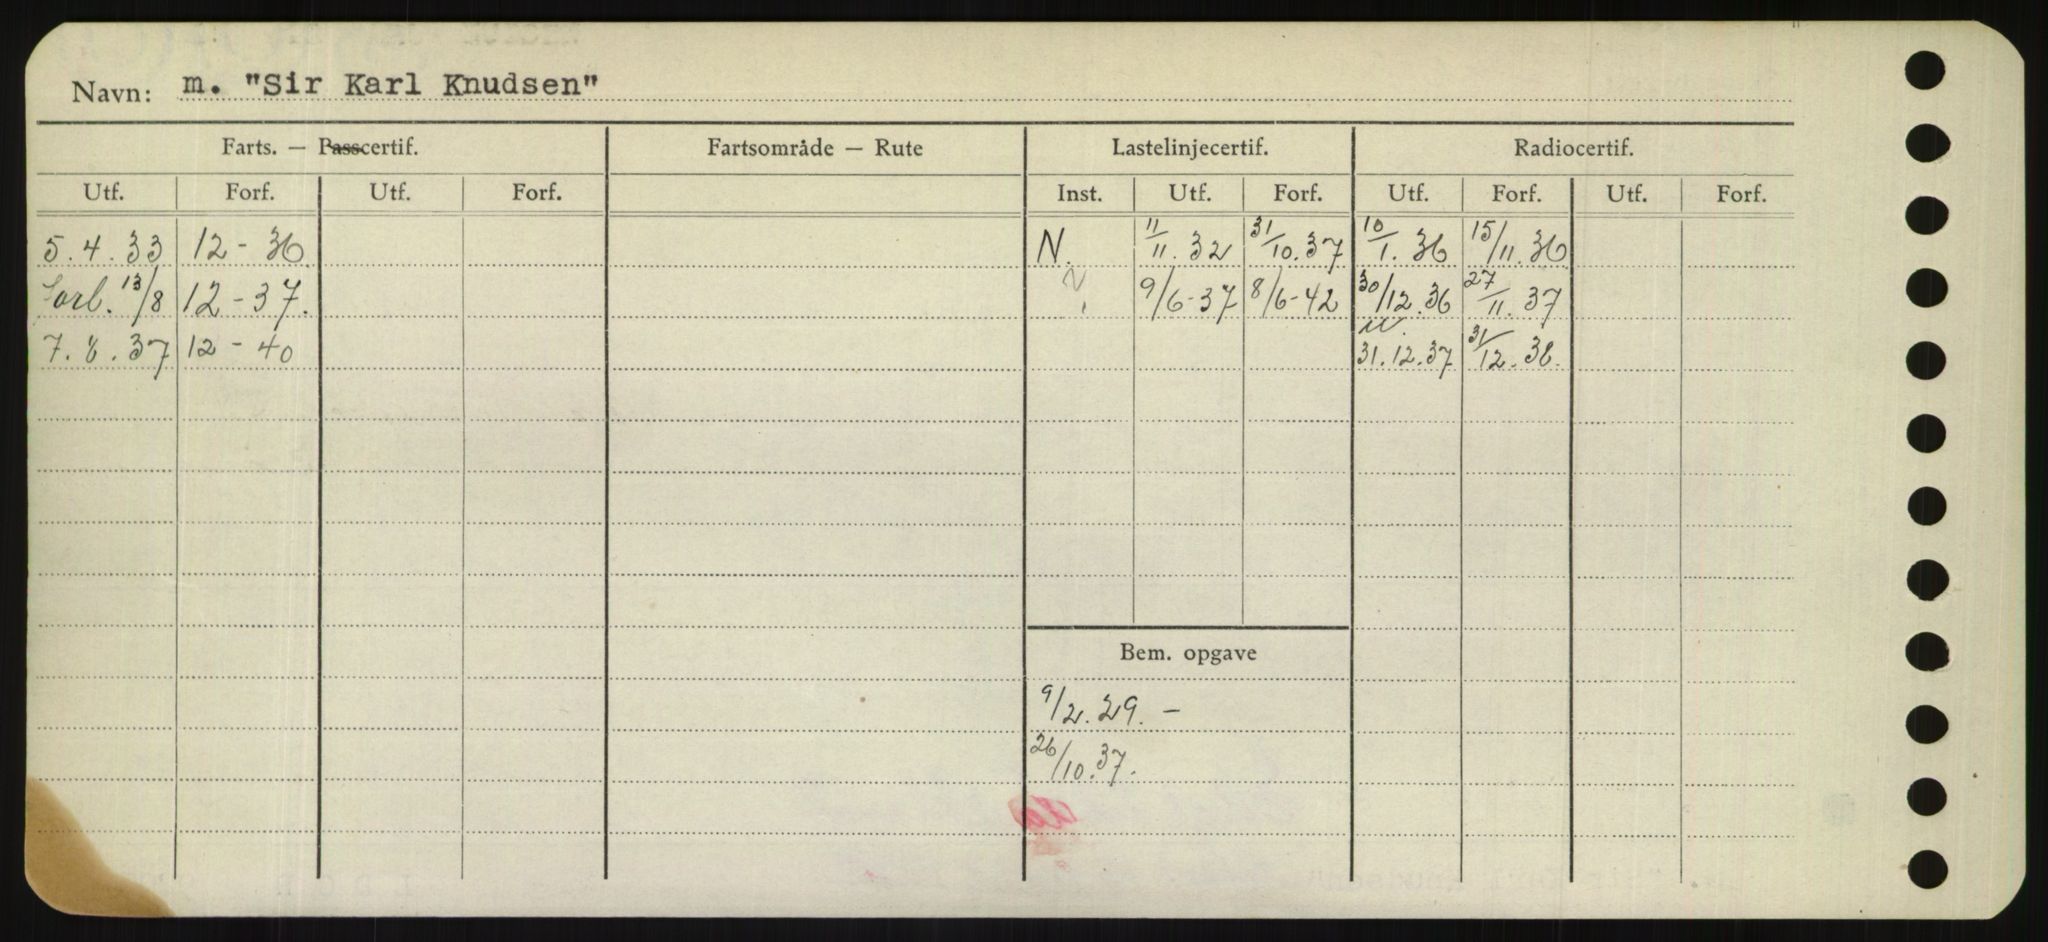 Navn: m. "Sir Karl Knudsen"
Farts. — Passcertif. Fartsområde — Rute Lastelinjecertif. Radiocertif.
Utf. Forf. Utf. Forf. Inst. Utf. Forf. Utf. Forf. Utf. Forf.
5.4.33 12-36 N. 11/11.32 31/10.37 10/1.36 15/11.36
Forl. 13/8 12-37. 9/6-37 8/6-42 30/12.36 27/11.37
7.8.37 12-40 31.12.37 31/12.38.
Bem. opgave
9/2.29. -
26/10.37.